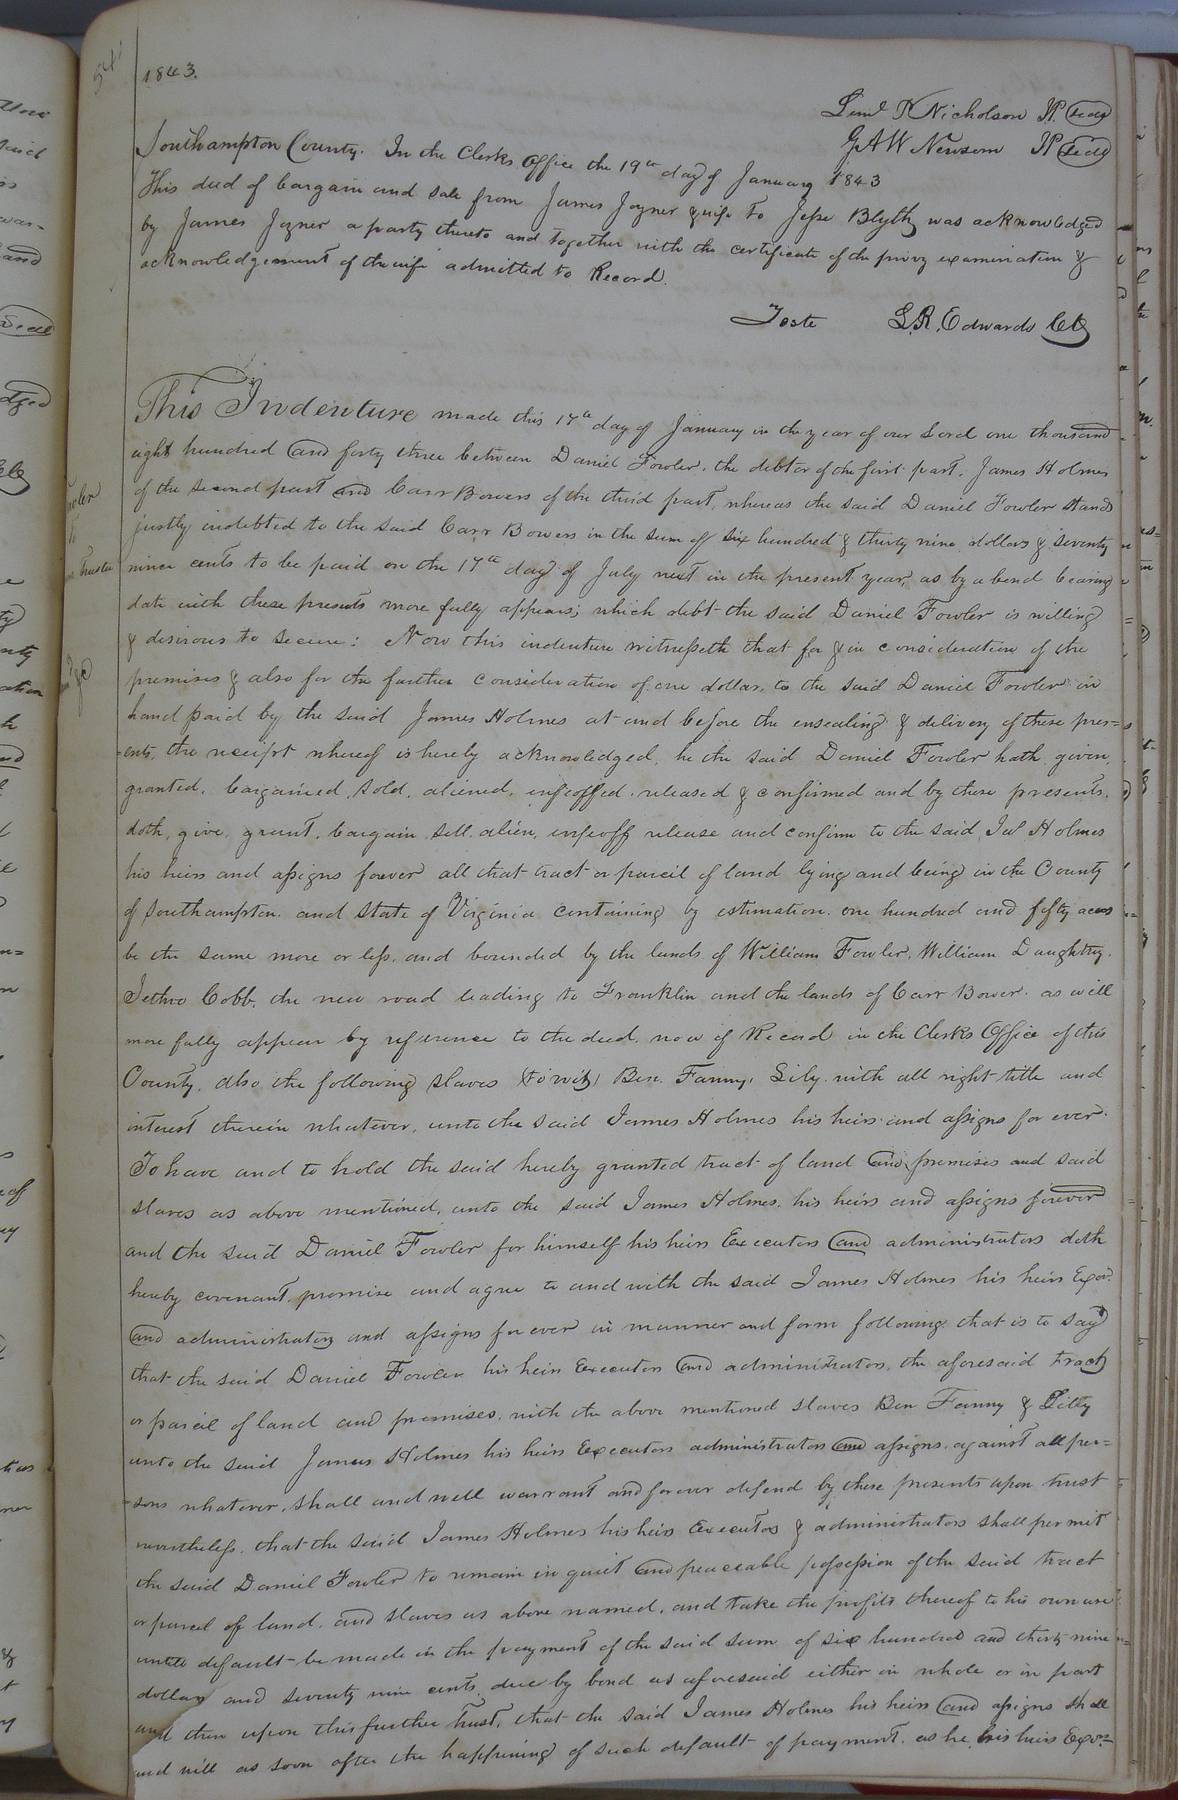 541
1843.
Leml P Nicholson JP. seal
G A W Newsom JP seal
Southampton County. In the Clerks Office the 19th day of January 1843
This deed of bargain and sale from James Joyner & wife to Jesse Blyth was acknowledged
by James Joyner a party thereto and together with the certificate of the privy examination &
acknowledgement of the wife admitted to Record.
Teste L.R. Edwards Clk
This Indenture made this 17th day of January in the year of our Lord one thousand
eight hundred and forty three between Daniel Fowler, the debtor of the first part, James Holmes
of the second part and Carr Bowers of the third part, whereas the said Daniel Fowler stands
justly indebted to the said Carr Bowers in the sum of six hundred & thirty nine dollars & seventy
nine cents to be paid on the 17th day of July next in the present year, as by a bond bearing
date with these presents more fully appears; which debt the said Daniel Fowler is willing
& desirous to secure: Now this indenture witnesseth that for & in consideration of the
premises & also for the further consideration of one dollar, to the said Daniel Fowler in
hand paid by the said James Holmes at and before the ensealing & delivery of these pres=
-ents, the receipt whereof is hereby acknowledged, he the said Daniel Fowler hath given,
granted, bargained, sold, aliened, infeoffed, released & confirmed and by these presents,
doth, give, grant, bargain, sell, alien, infeoff, release and confirm to the said Jas Holmes
his heirs and assigns forever all that tract or parcel of land lying and being in the County
of Southampton and State of Virginia containing by estimation one hundred and fifty acres
be the same more or less, and bounded by the lands of William Fowler, William Daughtry,
Jethro Cobb, the new road leading to Franklin and the lands of Carr Bower as will
more fully appear by reference to the deed now of Record in the Clerks Office of this
County, also the following slaves (towit) Ben, Fanny, Lily with all right title and
interest therein whatever, unto the said James Holmes his heirs and assigns for ever.
To have and to hold the said hereby granted tract of land and premises and said
slaves as above mentioned, unto the said James Holmes, his heirs and assigns forever
and the said Daniel Fowler for himself his heirs Executors and administrators doth
hereby covenant, promise and agree to and with the said James Holmes his heirs Exors.
and administrators and assigns for ever in manner and form following that is to say
that the said Daniel Fowler his heirs Executors and administrators, the aforesaid tract
or parcel of land and premises, with the above mentioned slaves Ben Fanny &
unto the said James Holmes his heirs Executors administrators and assigns, against all per=
-sons whatever, shall and will warrant and forever defend by these presents upon trust
nevertheless, that the said James Holmes his heirs Executors & administrators shall permit
the said Daniel Fowler to remain in quiet and peaceable possession of the said tract
or parcel of land, and slaves as above named, and take the profits thereof to his own use
until default be made in the payment of the said sum of six hundred and thirty nine
dollars and seventy nine cents, due by bond as aforesaid either in whole or in part
and then upon this further trust, that the said James Holmes his heirs and assigns shall
and will as soon after the happening of such default of payment, as he, his heirs Exors.=